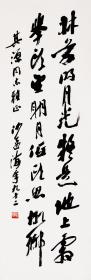 牀前明月光疑是地上霜
舉頭望明月低頭思故鄉
其源同志雅正 沙孟海年九十二